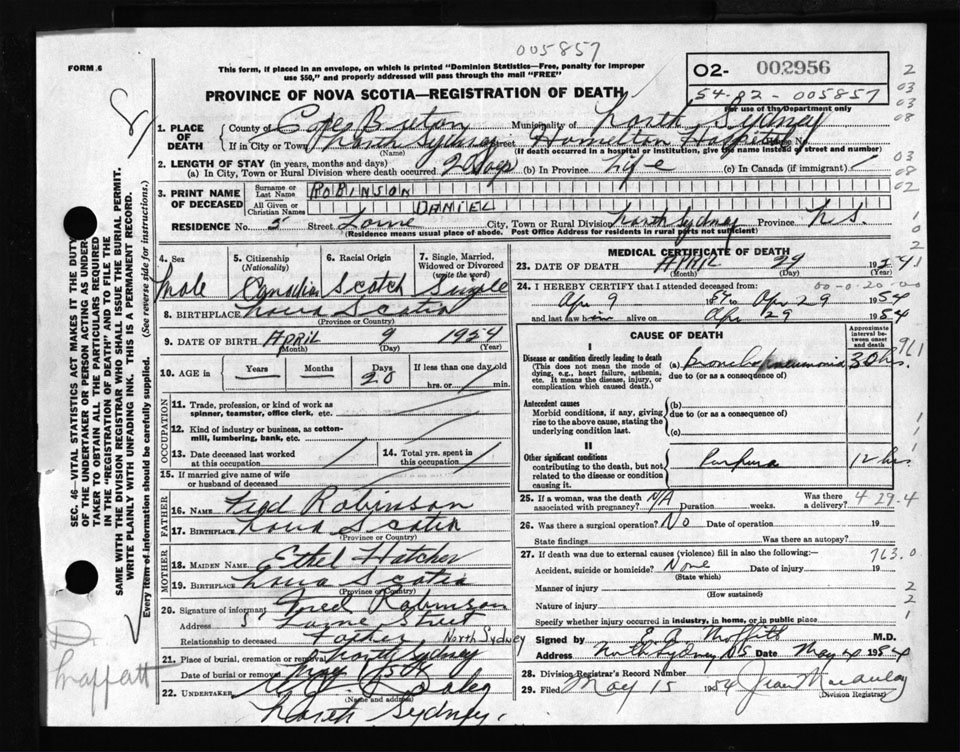 005857
FORM 6
This form, if placed in an envelope, on which is printed "Dominion Statistics—Free, penalty for improper
use $50," and properly addressed will pass through the mail "FREE"
O2- 002956
54-82-005857
For use of the Department only
PROVINCE OF NOVA SCOTIA—REGISTRATION OF DEATH
1. PLACE OF DEATH County of Cape Breton Municipality of North Sydney
If in City or Town North Sydney Street Hamilton Hospital
(Name) (If death occurred in a hospital or institution, give the name instead of street and number)
2. LENGTH OF STAY (in years, months and days)
(a) In City, Town or Rural Division where death occurred 20 days (b) In Province Life (c) In Canada (if immigrant)
3. PRINT NAME OF DECEASED Surname or Last Name ROBINSON
All Given or Christian Names DANIEL
RESIDENCE No. 5 Street Lorne City, Town or Rural Division North Sydney Province N.S.
(Residence means usual place of abode. Post Office Address for residents in rural parts not sufficient)
4. Sex Male
5. Citizenship (Nationality) Canadian
6. Racial Origin Scotch
7. Single, Married, Widowed or Divorced (write the word) Single
8. BIRTHPLACE Nova Scotia
(Province or Country)
9. DATE OF BIRTH April 9 1954
(Month) (Day) (Year)
10. AGE in Years Months Days 20 If less than one day old
hrs. or min.
OCCUPATION
11. Trade, profession, or kind of work as
spinner, teamster, office clerk, etc.
12. Kind of industry or business, as cotton-
mill, lumbering, bank, etc.
13. Date deceased last worked
at this occupation
14. Total yrs. spent in
this occupation
15. If married give name of wife
or husband of deceased
FATHER
16. NAME Fred Robinson
17. BIRTHPLACE Nova Scotia
(Province or Country)
MOTHER
18. MAIDEN NAME Ethel Hatcher
19. BIRTHPLACE Nova Scotia
(Province or Country)
20. Signature of informant Fred Robinson
Address 5 Lorne Street
Relationship to deceased Father North Sydney
21. Place of burial, cremation or removal North Sydney
Date of burial or removal
22. UNDERTAKER
(Name and address)
North Sydney.
MEDICAL CERTIFICATE OF DEATH
23. DATE OF DEATH APRIL 29 19
(Month) (Day) (Year)
24. I HEREBY CERTIFY that I attended deceased from:
Apr 9 1954 to Apr 29 1954
and last saw him alive on Apr 29 1954
CAUSE OF DEATH
Approximate interval between onset and death
I
Disease or condition directly leading to death
(This does not mean the mode of
dying, e.g., heart failure, asthenia,
etc. It means the disease, injury, or
complication which caused death.)
(a) Bronchopneumonia 30 hrs.
due to (or as a consequence of)
Antecedent causes
Morbid conditions, if any, giving
rise to the above cause, stating the
underlying condition last.
(b)
due to (or as a consequence of)
(c)
II
Other significant conditions
contributing to the death, but not
related to the disease or condition
causing it.
Purpura 12 hrs
25. If a woman, was the death associated with pregnancy? N/A Duration weeks. Was there a delivery? 4 29.4
26. Was there a surgical operation? No Date of operation 19
State findings Was there an autopsy?
27. If death was due to external causes (violence) fill in also the following:—
763.0
Accident, suicide or homicide? None Date of injury 19
(State which)
Manner of injury
(How sustained)
Nature of injury
Specify whether injury occurred in industry, in home, or in public place
Signed by E.A. Moffatt M.D.
Address North Sydney NS Date May 4 1954
28. Division Registrar's Record Number
29. Filed May 15 1954 Jean Macaulay
(Division Registrar)
SEC. 46—VITAL STATISTICS ACT MAKES IT THE DUTY
OF THE UNDERTAKER OR PERSON ACTING AS UNDER-
TAKER TO OBTAIN ALL THE PARTICULARS REQUIRED
IN THE "REGISTRATION OF DEATH" AND TO FILE THE
SAME WITH THE DIVISION REGISTRAR WHO SHALL ISSUE THE BURIAL PERMIT.
WRITE PLAINLY WITH UNFADING INK. THIS IS A PERMANENT RECORD.
Every item of information should be carefully supplied. (See reverse side for instructions.)
Dr. Moffatt